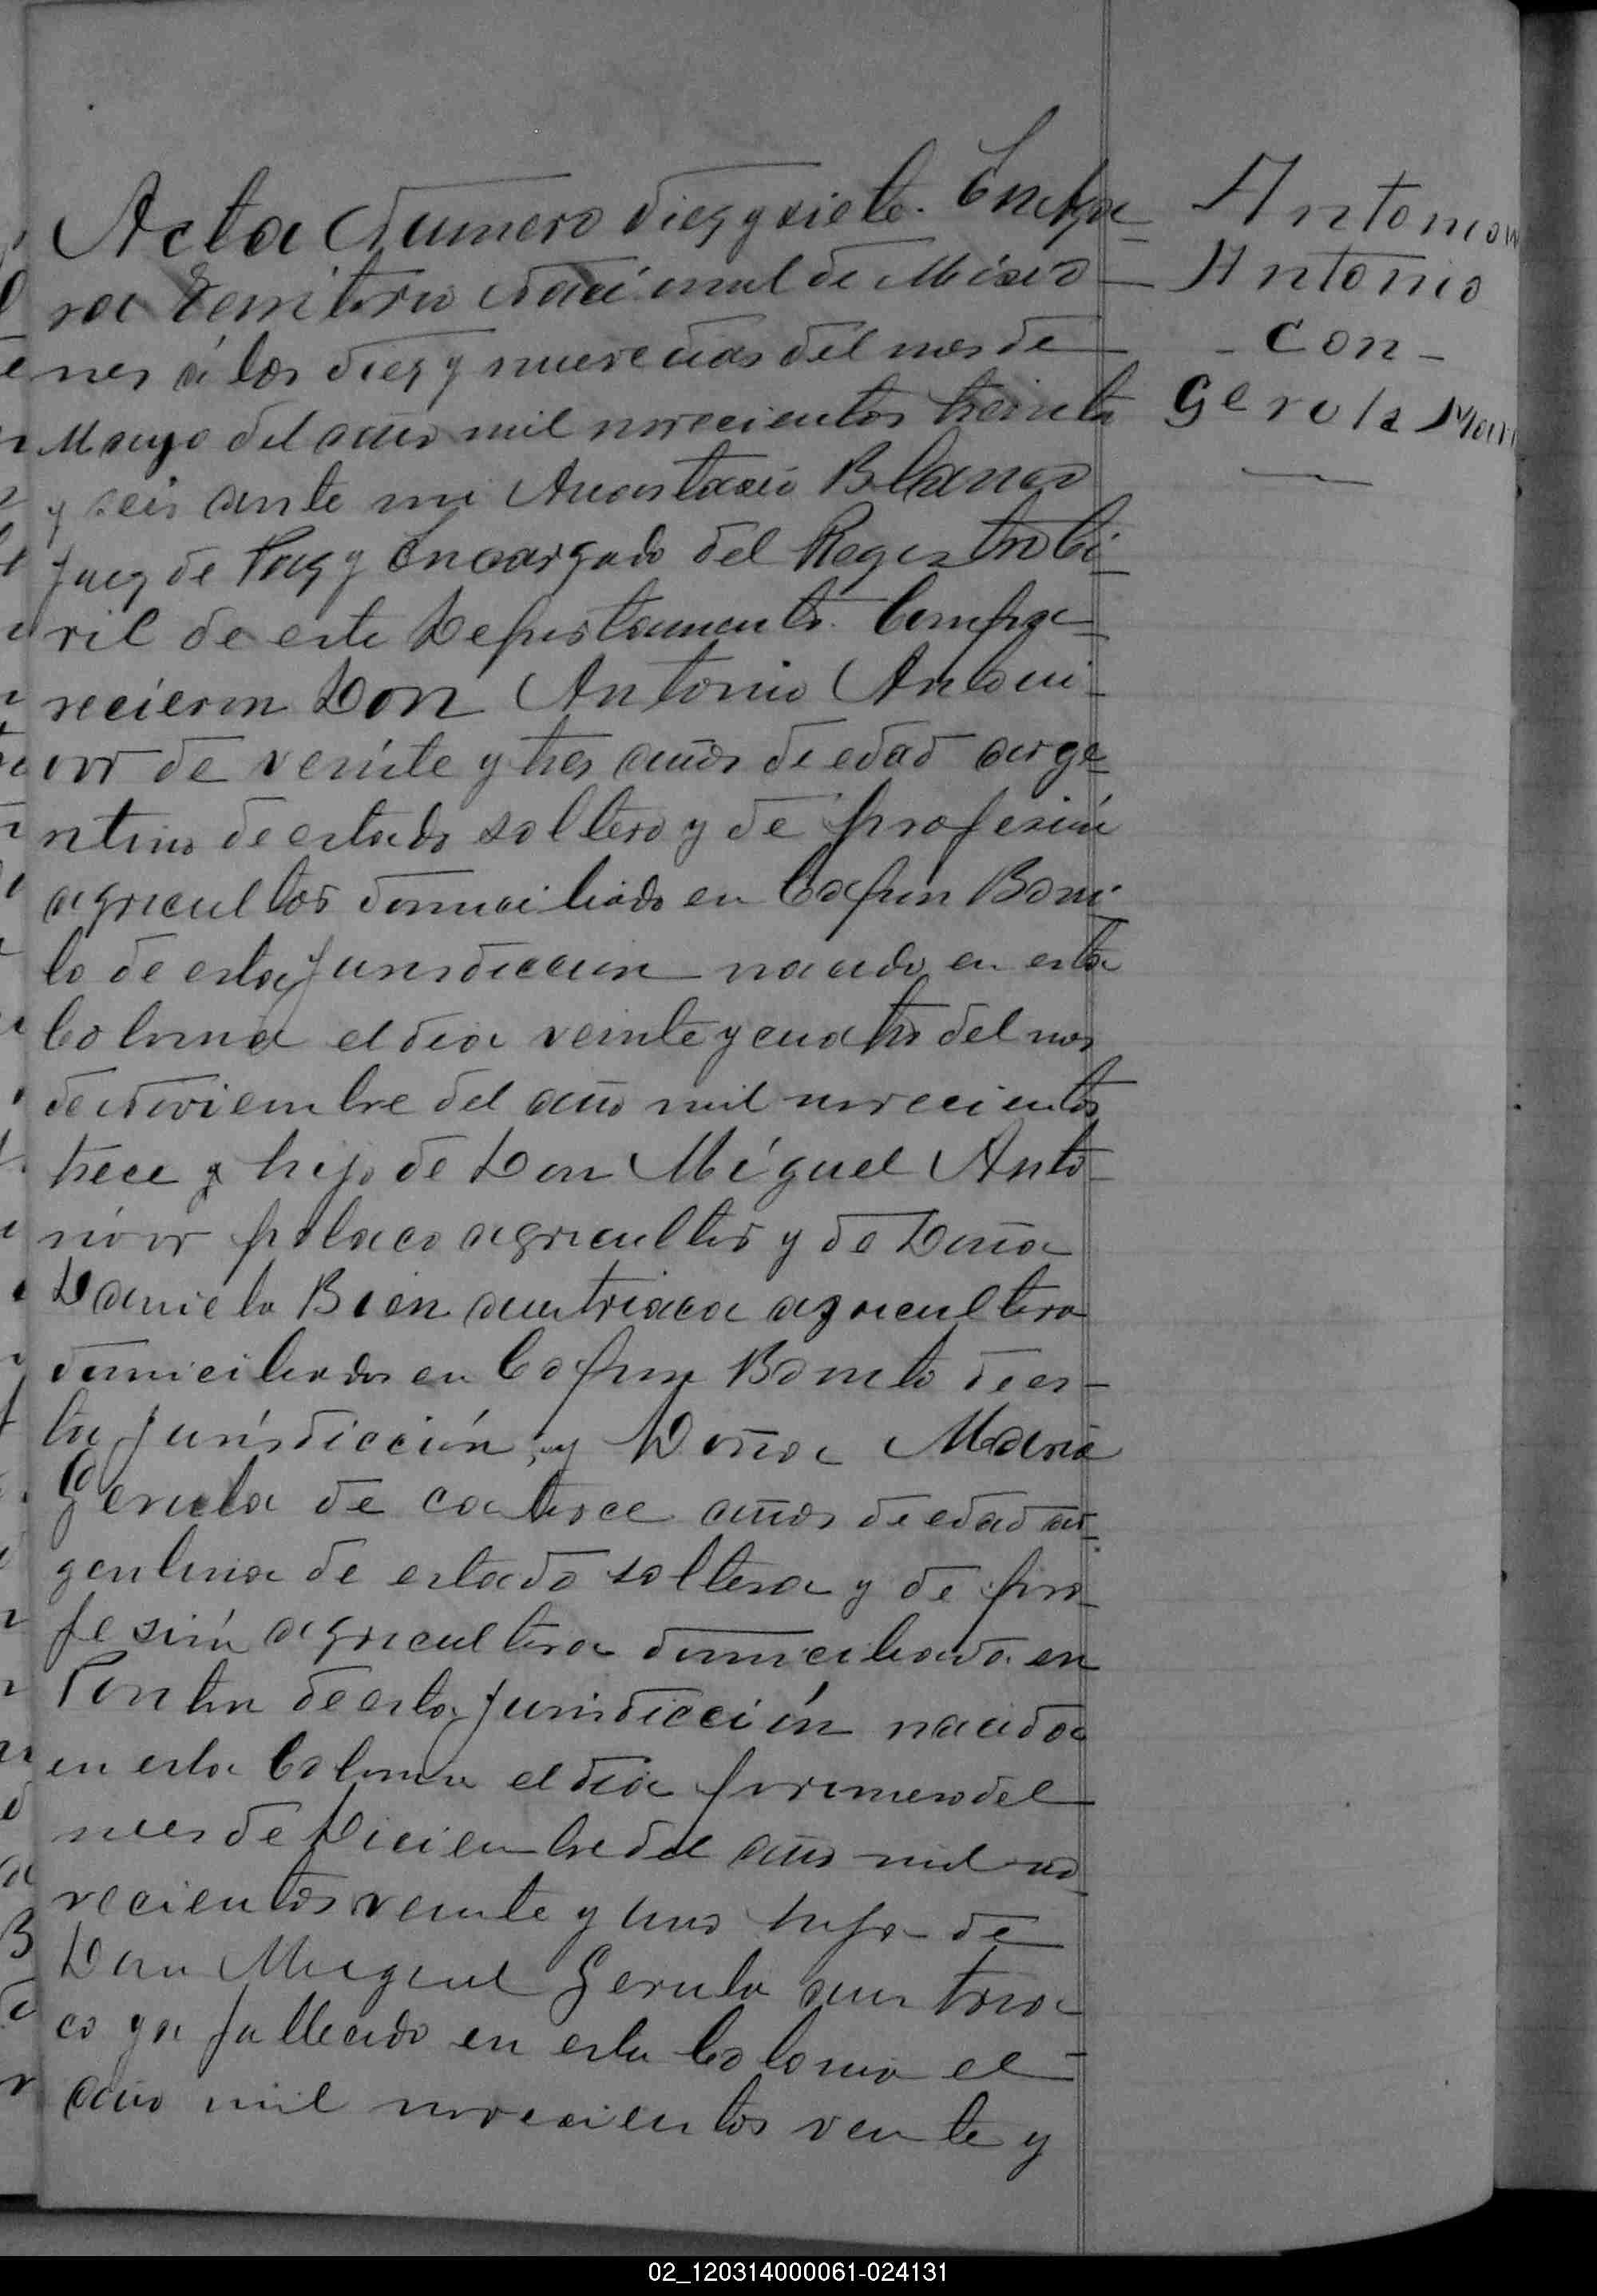 Acta Numero diez y siete. En Apa-
Antoniow
ra Territorio Nacional de Misio-
Antonio
nes á los diez y nueve dias del mes de
- con -
Mayo del año mil novecientos treinta
Gerula Mari
y seis ante mi Anastacio Blanco
Juez de Paz y Encargado del Registro Ci-
vil de este Departamento. Compa-
recieron Don Antonio Antoni-
ow de veinte y tres años de edad arge-
ntino de estado soltero y de profesión
agricultor domiciliado en Capon Boni-
to de esta Jurisdiccion nacido en esta
Colonia el dia veinte y cuatro del mes
de Noviembre del año mil novecientos
trece y hijo de Don Miguel Anto-
niow polaco agricultor y de Doña
Daniela Bien austriaca agricultora
domiciliados en Capon Bonito de es-
ta Jurisdicción, y Doña Maria
Gerula de catorce años de edad ar-
gentina de estado soltera y de pro-
fesión agricultora domiciliada en
de esta Jurisdicción nacida
en esta Colonia el dia primero del
mes de Diciembre del año mil no-
vecientos veinte y uno hija de
Don Miguel Gerula austria-
co ya fallecido en esta Colonia el
año mil novecientos veinte y
02_120314000061-024131